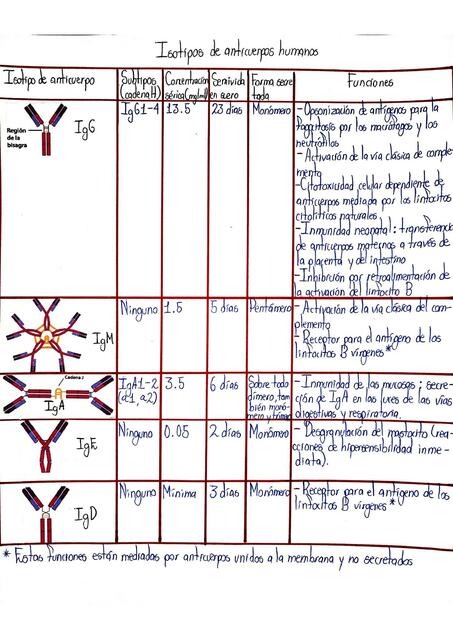 Isotipos de anticuerpos humanos
Isotipo de anticuerpo
Subtipos (cadena H)
Concentración sérica (mg/ml)
Semivida en suero
Forma secretada
Funciones
Región de la bisagra
IgG
IgG1-4
13.5
23 días
Monómero
- Opsonización de antígenos para la
fagocitosis por los macrófagos y los
neutrófilos
- Activación de la vía clásica de comple-
mento
- Citotoxicidad celular dependiente de
anticuerpos mediada por los linfocitos
citolíticos naturales
- Inmunidad neonatal: transferencia
de anticuerpos maternos a través de
la placenta y del intestino
- Inhibición por retroalimentación de
la activación del linfocito B
IgM
Ninguno
1.5
5 días
Pentámero
- Activación de la vía clásica del com-
plemento
- Receptor para el antígeno de los
linfocitos B vírgenes*
Cadena J
IgA
IgA1-2
3.5
6 días
Sobre todo
dímero, tam
bién monó
mero y
- Inmunidad de las mucosas: secre-
ción de IgA en las luces de las vías
digestivas y respiratoria.
IgE
Ninguno
0.05
2 días
Monómero
- Desgranulación del mastocito (rea
cciones de hipersensibilidad inme-
diata).
IgD
Ninguno
Mínima
3 días
Monómero
- Receptor para el antígeno de los
linfocitos B vírgenes*
* Estas funciones están mediadas por anticuerpos unidos a la membrana y no secretados